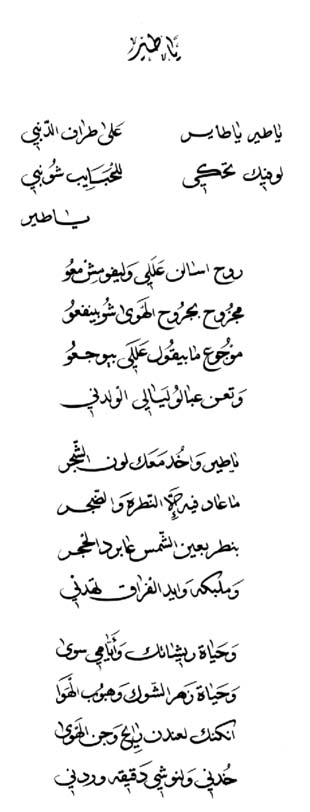 يا طير
يا طير يا طاير على طراف الدني
لو فيك تحكي للحبايب شو بني
يا طير
روح اسألن عاللي وليفو مش معو
مجروح بجروح الهوى شو بينفعو
موجوع ما بيقول عاللي بيوجعو
وتعن عبالو ليالي الولدني
يا طير واخد معك لون الشجر
ما عاد فيه إلا النطرة والضجر
بنطر بعين الشمس عا برد الحجر
وملبكه وايد الفراق تهدني
وحياة ريشاتك وأيامي سوى
وحياة زهر الشوك وهبوب الهوا
انكنك لعندن رايح وجن الهوى
خدني ولو شي دقيقه وردني